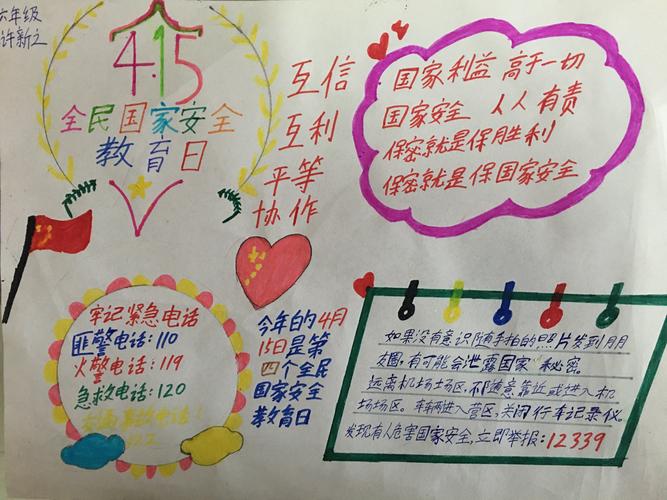 六年级
许新之
4.15
全民国家安全
教育日
互信
互利
平等
协作
国家利益 高于一切
国家安全 人人有责
保密就是保胜利
保密就是保国家安全
牢记紧急电话
匪警电话:110
火警电话:119
急救电话:120
交通事故电话:
122
今年的4月
15日是第
四个全民
国家安全
教育日
如果没有意识随手拍的照片发到朋
友圈,有可能会泄露国家秘密。
远离机场场区,不随意靠近或进入机
场场区。车辆进入营区,关闭行车记录仪。
发现有人危害国家安全,立即举报:12339